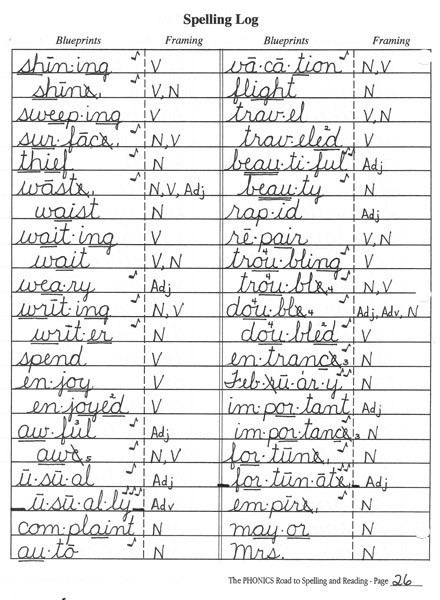 Spelling Log
Blueprints Framing
shīn·ing V
shīne V, N
sweep·ing V
sur·fāce N, V
thief N
wāste N, V, Adj
waist N
wait·ing V
wait V, N
wea·ry Adj
wrīt·ing N, V
wrīt·er N
spend V
en·joy V
en·joyed² V
aw·ful³ Adj
awe₅ N, V
ū·sū·al Adj
ū·sū·al·ly Adv
com·plaint N
au·tō N
Blueprints Framing
vā·cā·tion N, V
flight N
trav·el V, N
trav·eled² V
beau·ti·ful Adj
beau·ty N
rap·id Adj
rē·pair V, N
trou⁴·bling V
trou⁴·ble₄ N, V
dou⁴·ble₄ Adj, Adv, N
dou⁴·bled² V
en·trance₃ N
Feb·rū·ar·y N
im·por·tant Adj
im·por·tance₃ N
for·tūne N
for·tūn·āte Adj
em·pīre N
may·or N
Mrs. N
The PHONICS Road to Spelling and Reading - Page 26